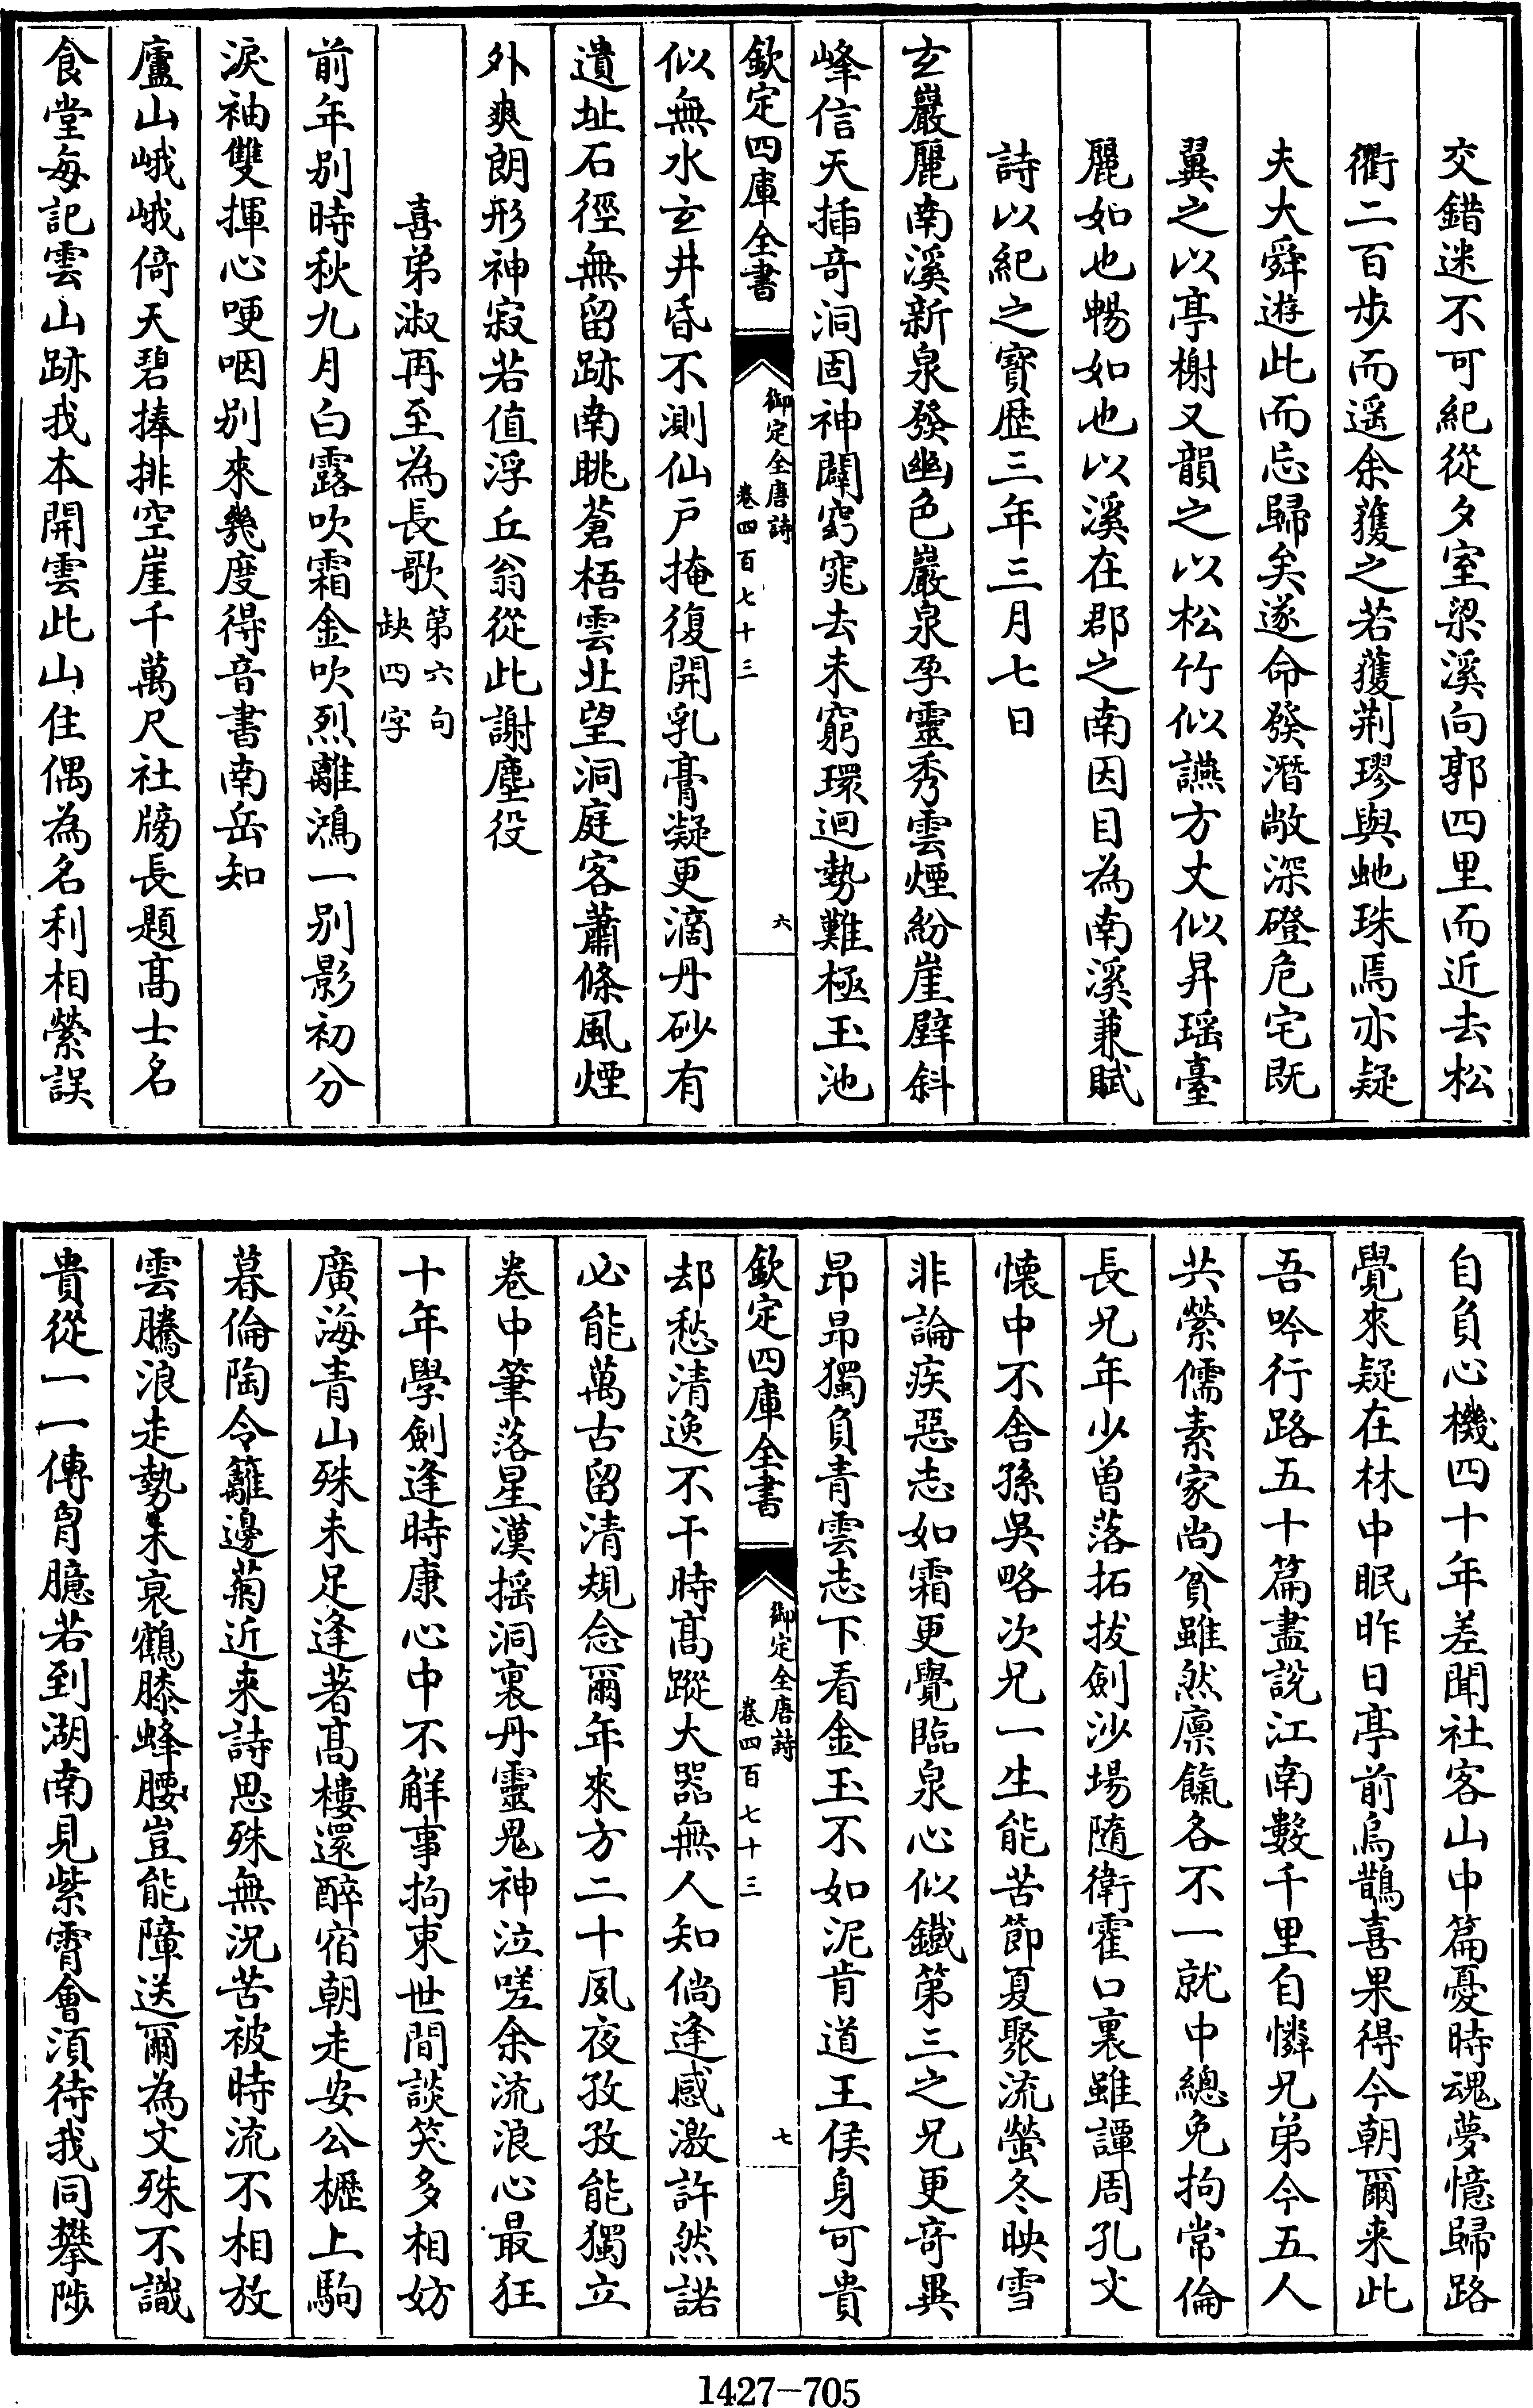 交錯迷不可紀從夕室梁溪向郭四里而近去松
衢二百步而遥余獲之若獲荆璆與虵珠焉亦疑
夫大舜遊此而忘歸矣遂命發潛敞深磴危宅既
翼之以亭榭又韻之以松竹似讌方丈似昇瑶臺
麗如也暢如也以溪在郡之南因目為南溪兼賦
詩以紀之寶歴三年三月七日
玄巖麗南溪新泉發幽色巖泉孕靈秀雲煙紛崖壁斜
峰信天插奇洞固神闢窈窕去未窮環迴勢難極玉池
欽定四庫全書
御定全唐詩
卷四百七十三
六
似無水玄井昏不測仙户掩復開乳膏凝更滴丹砂有
遺址石徑無留跡南眺蒼梧雲北望洞庭客蕭條風煙
外爽朗形神寂若值浮丘翁從此謝塵役
喜弟淑再至為長歌第六句缺四字
前年别時秋九月白露吹霜金吹烈離鴻一别影初分
淚袖雙揮心哽咽别來幾度得音書南岳知
廬山峨峨倚天碧捧排空崖千萬尺社牓長題髙士名
食堂每記雲山跡我本開雲此山住偶為名利相縈誤
自負心機四十年差聞社客山中篇憂時魂夢憶歸路
覺來疑在林中眠昨日亭前烏鵲喜果得今朝爾来此
吾吟行路五十篇盡說江南數千里自憐兄弟今五人
共縈儒素家尚貧雖然廪餼各不一就中總免拘常倫
長兄年少曾落拓拔劍沙場隨衛霍口裏雖譚周孔文
懐中不舍孫吳略次兄一生能苦節夏聚流螢冬映雪
非論疾惡志如霜更覺臨泉心似鐵第三之兄更奇異
昂昂獨負青雲志下看金玉不如泥肯道王侯身可貴
欽定四庫全書
御定全唐詩
卷四百七十三
七
却愁清逸不干時髙蹤大器無人知倘逢感激許然諾
必能萬古留清規念爾年來方二十夙夜孜孜能獨立
卷中筆落星漢摇洞裏丹靈鬼神泣嗟余流浪心最狂
十年學劍逢時康心中不解事拘束世間談笑多相妨
廣海青山殊未足逢著髙樓還醉宿朝走安公櫪上駒
暮倫陶令籬邊菊近来詩思殊無況苦被時流不相放
雲騰浪走勢未衰鶴膝蜂腰豈能障送爾為文殊不識
貴從一一傳胷臆若到湖南見紫霄會須待我同攀陟
1427—705